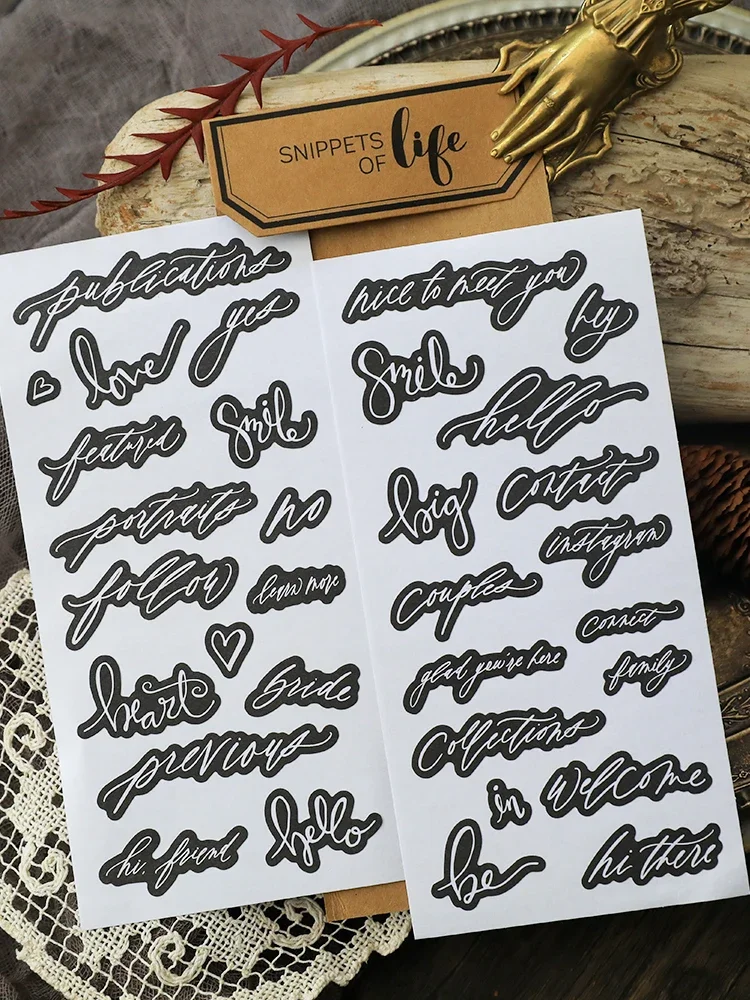 SNIPPETS
OF life
publications
yes
love
featured
smile
portraits
no
follow
learn more
heart
bride
previous
hi, friend
hello
nice to meet you
hey
smile
hello
big
contact
instagram
couples
connect
glad you're here
family
Collections
in
welcome
be
hi there